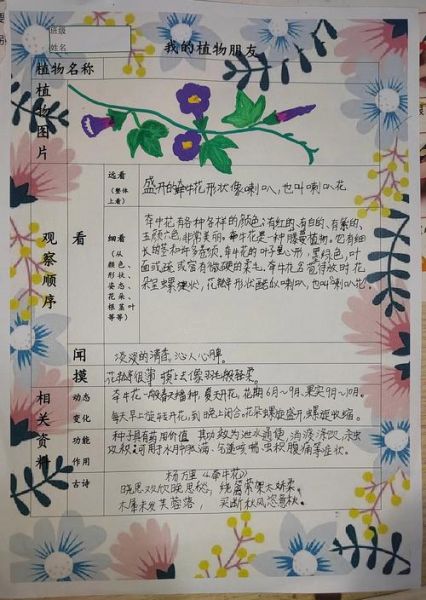 班级
姓名
我的植物朋友
植物名称
植物图片
观察顺序
看
远看
(整体上看)
盛开的牵牛花形状像喇叭,也叫喇叭花
细看
(从颜色、形状、姿态、花朵、根茎叶等等)
牵牛花有各种各样的颜色,有红的、有白的、有紫的、
五颜六色,非常美丽。牵牛花是一种蔓藤植物。它有细
长的茎和许多卷须,牵牛花的叶子呈心形,墨绿色,叶
面或疏或密有微硬的柔毛。牵牛花含苞待放时花
朵呈螺旋状,花朵形状酷似喇叭,也叫喇叭花。
闻
淡淡的清香,沁人心脾。
摸
花瓣很薄 摸上去像羽毛般轻柔。
相关资料
动态变化
牵牛花一般春天播种,夏天开花,花期6月~9月,果实9月~10月。
每天早上旋转开花,到晚上闭合。花朵螺旋盛开,螺旋收缩。
功能作用
种子具有药用价值,其功效为泄水通便,消涤涤饮,杀虫
攻积;可用于水肿胀满,气逆咳喘,虫积腹痛等症状。
古诗
杨万里《牵牛花》
晓思欢欣晚思愁,绕篱萦架太娇柔。
木犀未发芙蓉落,买断秋风恣意秋。